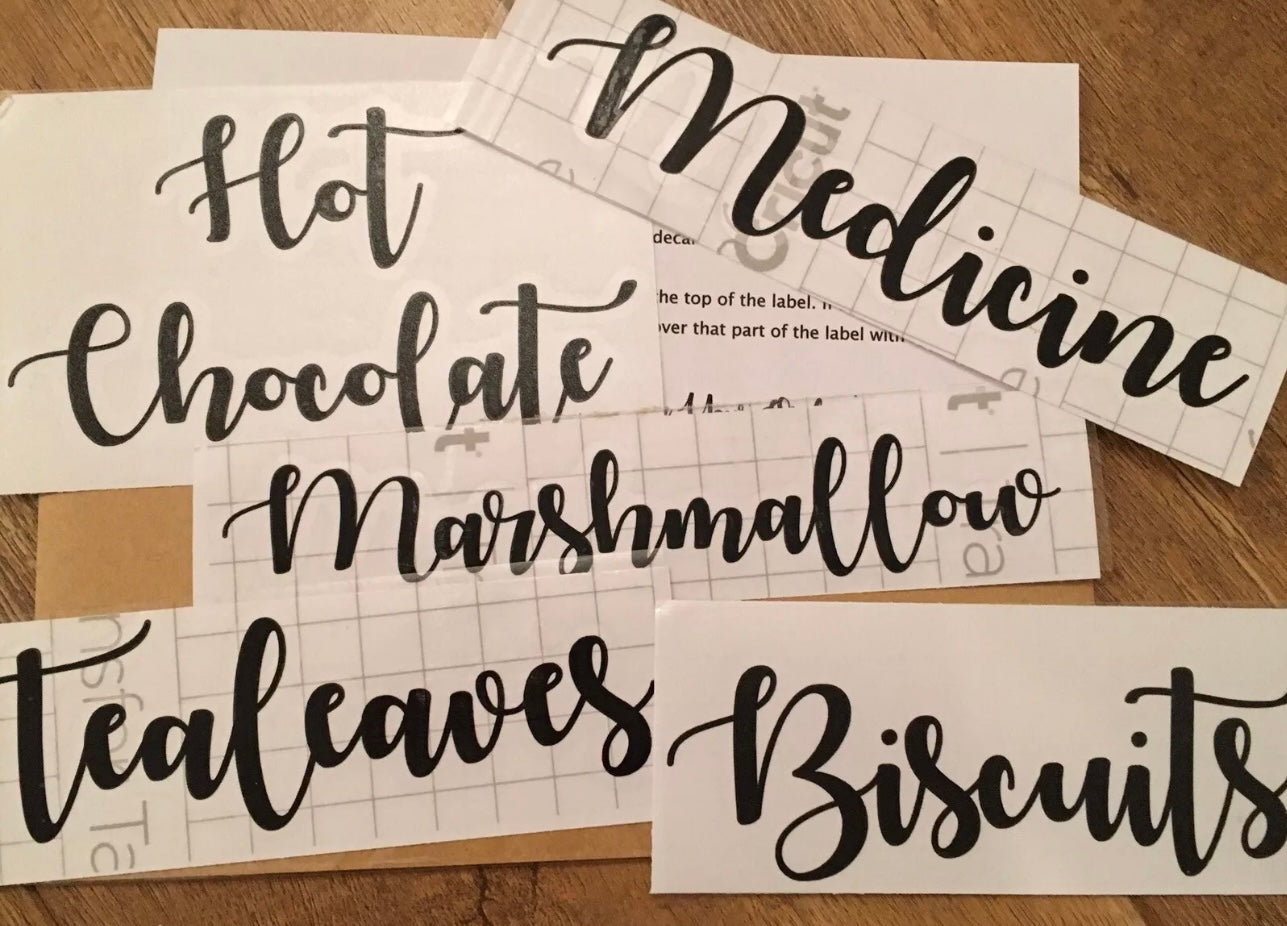 Hot
Chocolate
Medicine
Cricut
the top of the label.
over that part of the label with
Marshmallow
tealeaves
Biscuits